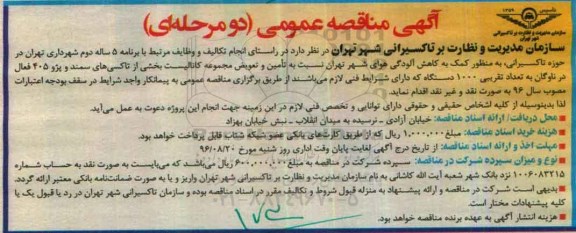 آگهی مناقصه عمومی (دو مرحله‌ای)
سازمان مدیریت و نظارت بر تاکسیرانی شهر تهران
سازمان مدیریت و نظارت بر تاکسیرانی شهر تهران در نظر دارد در راستای انجام تکالیف و وظایف مرتبط با برنامه ۵ ساله دوم شهرداری تهران در
حوزه تاکسیرانی، به منظور کمک به کاهش آلودگی هوای شهر تهران نسبت به تأمین و تعویض مجموعه کاتالیست بخشی از تاکسی‌های سمند و پژو ۴۰۵ فعال
در ناوگان به تعداد تقریبی ۱۰۰۰ دستگاه که دارای شرایط فنی لازم می‌باشند از طریق برگزاری مناقصه عمومی به پیمانکار واجد شرایط در سقف بودجه اعتبارات
مصوب سال ۹۶ به صورت نقد و غیر نقد اقدام نماید.
لذا بدینوسیله از کلیه اشخاص حقیقی و حقوقی دارای توانایی و تخصص فنی لازم در این زمینه جهت انجام این پروژه دعوت به عمل می‌آید.
محل دریافت/ ارائه اسناد مناقصه: خیابان آزادی - نرسیده به میدان انقلاب - نبش خیابان بهزاد
هزینه خرید اسناد مناقصه: مبلغ ۱,۰۰۰,۰۰۰ ریال که از طریق کارت‌های بانکی عضو شبکه شتاب قابل پرداخت خواهد بود.
مهلت اخذ و ارائه اسناد مناقصه: از تاریخ درج آگهی لغایت پایان وقت اداری روز شنبه مورخ ۹۶/۰۸/۲۰
نوع و میزان سپرده شرکت در مناقصه: سپرده شرکت در مناقصه به مبلغ ۶۰۰,۰۰۰,۰۰۰ ریال می‌باشد که می‌بایست به صورت نقد به حساب شماره
۱۰۰۶۰۸۳۲۱۵ نزد بانک شهر شعبه آیت الله کاشانی به نام سازمان مدیریت و نظارت بر تاکسیرانی شهر تهران واریز و یا به صورت ضمانت‌نامه بانکی معتبر ارائه گردد.
بدیهی است شرکت در مناقصه و ارائه پیشنهاد به منزله قبول شروط و تکالیف مقرر در اسناد مناقصه بوده و سازمان تاکسیرانی شهر تهران در رد یا قبول یک یا
کلیه پیشنهادات مختار است.
هزینه انتشار آگهی به عهده برنده مناقصه خواهد بود.